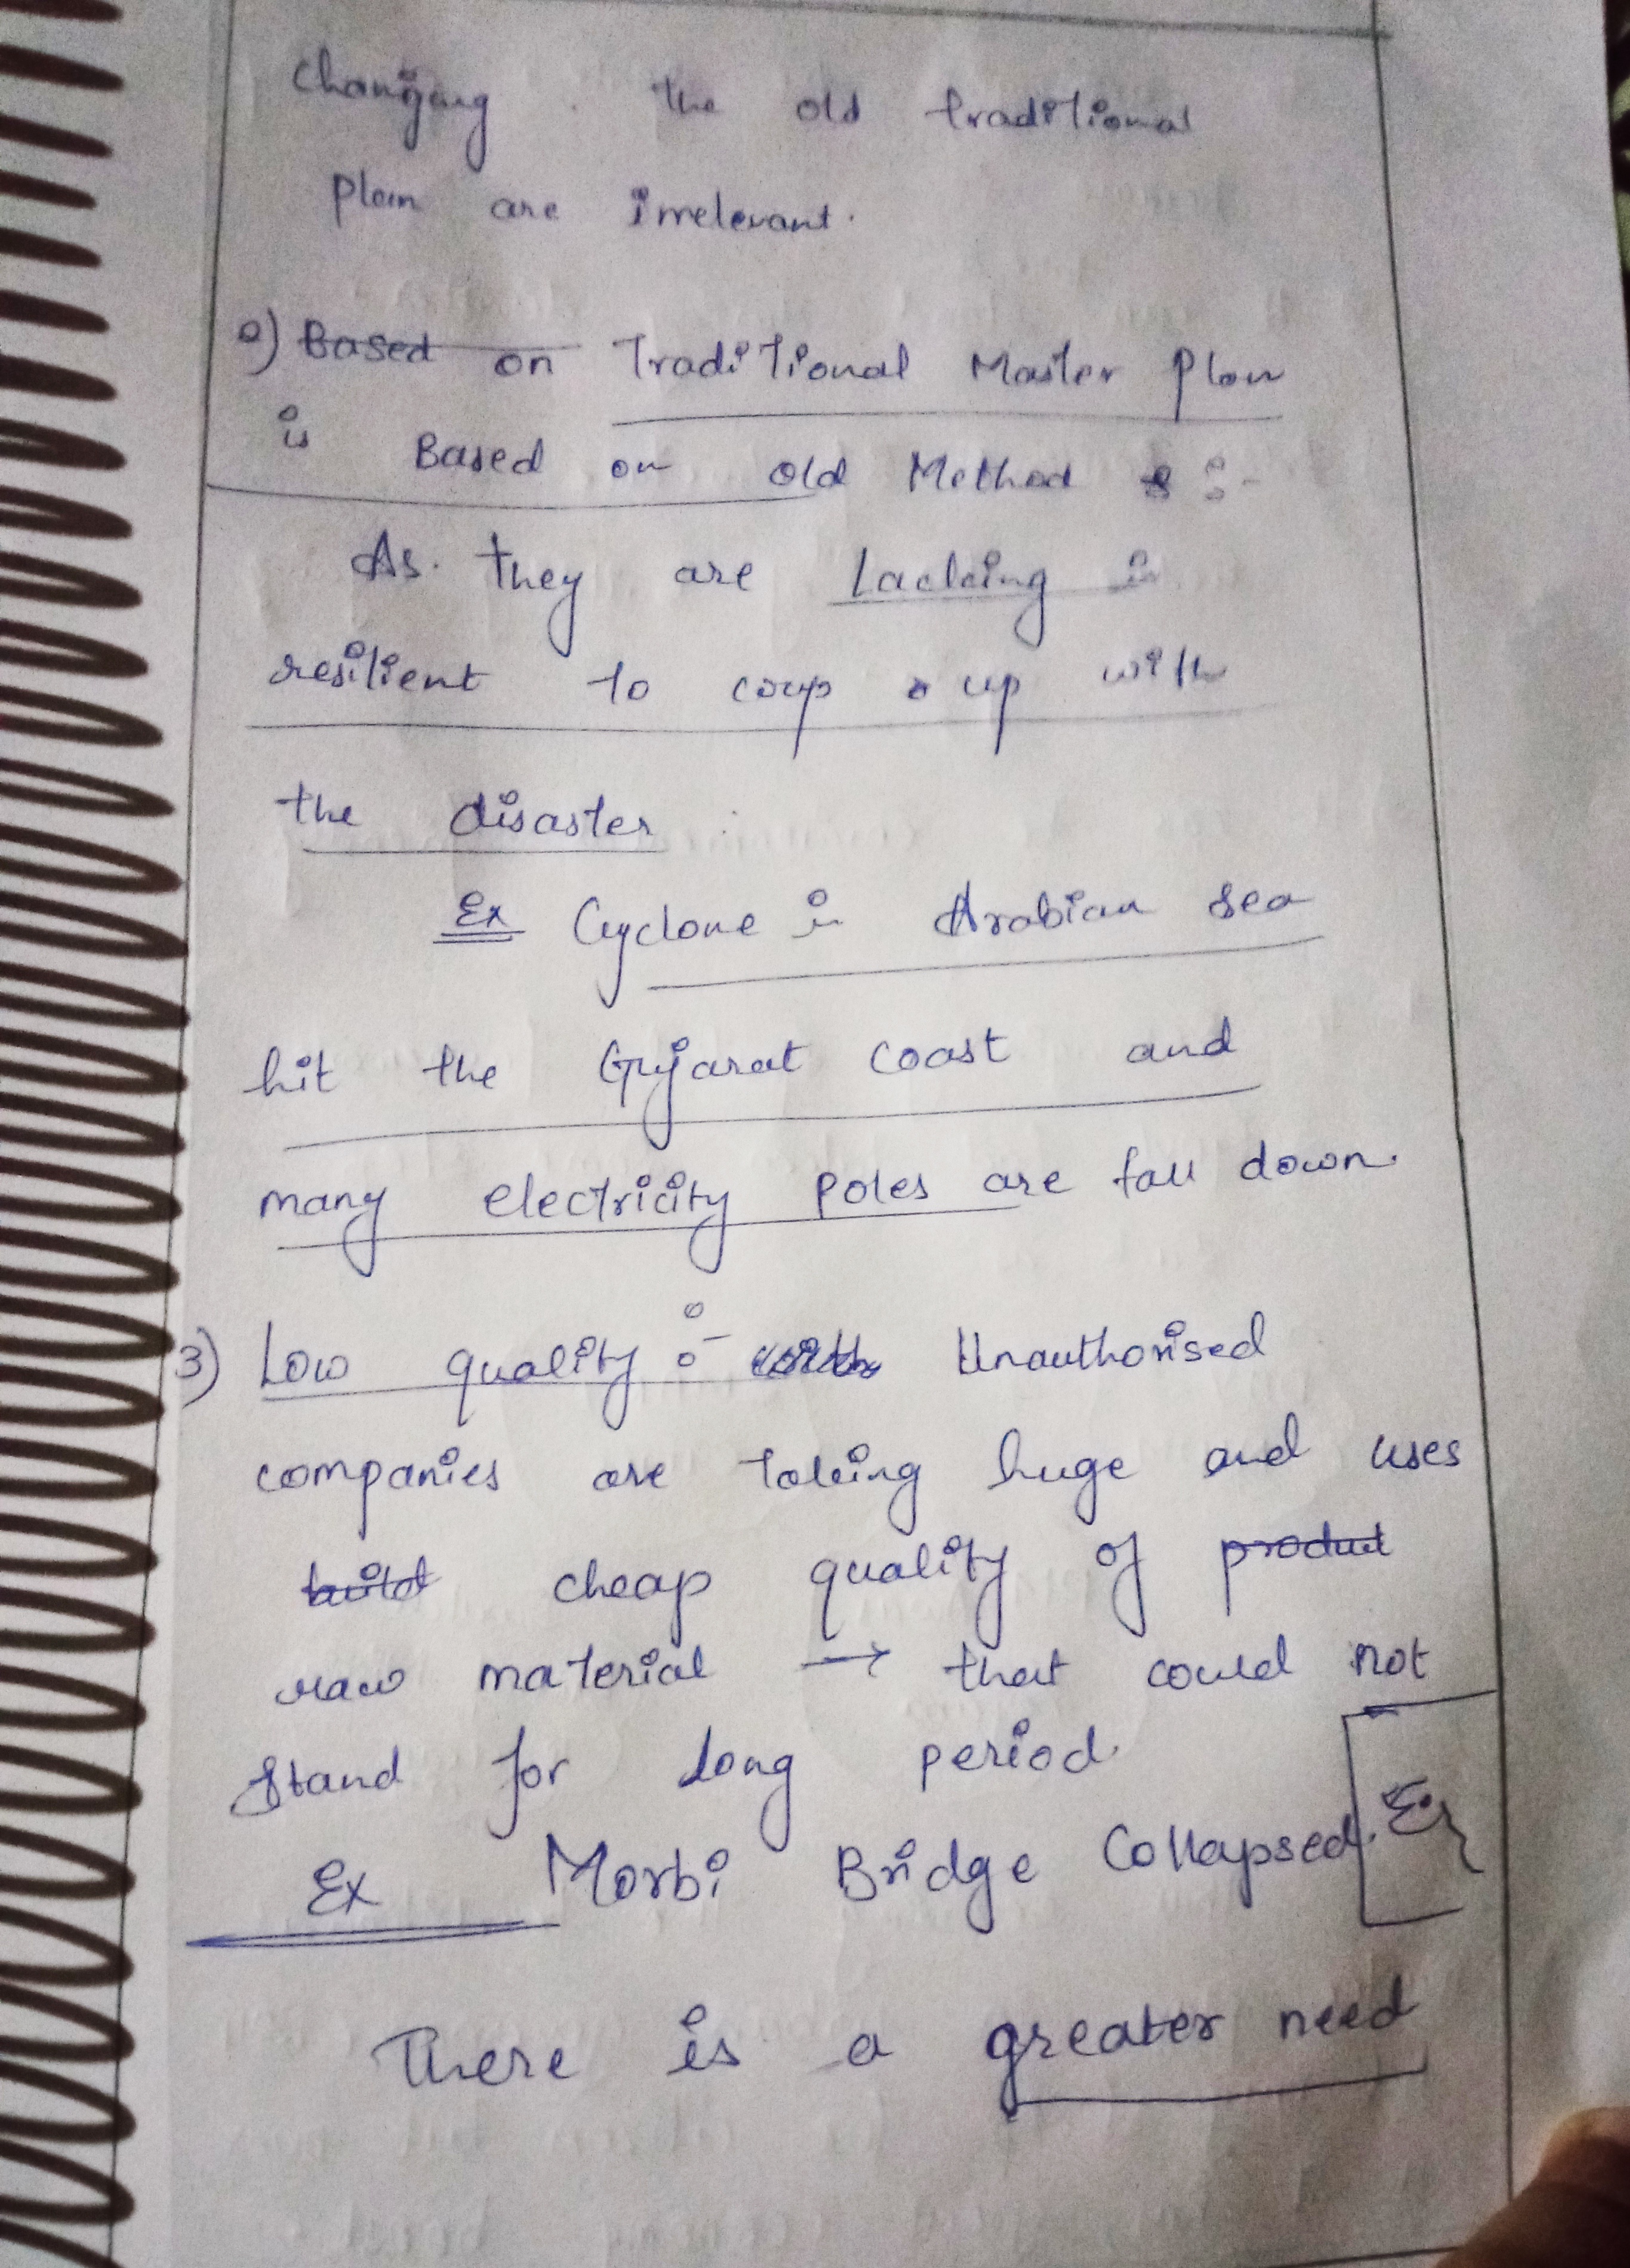 changing the old traditional
plan are irrelevant.
2) Based on Traditional Master Plan
is Based on old Method :-
As. they are Lacking in
resilient to coup up with
the disaster
Ex Cyclone in Arabian sea
hit the Gujarat coast and
many electricity poles are fall down.
3) Low quality :- with Unauthorised
companies are taking huge and uses
build cheap quality of product
raw material → that could not
Stand for long period.
Ex Morbi Bridge Collapsed.
There is a greater need